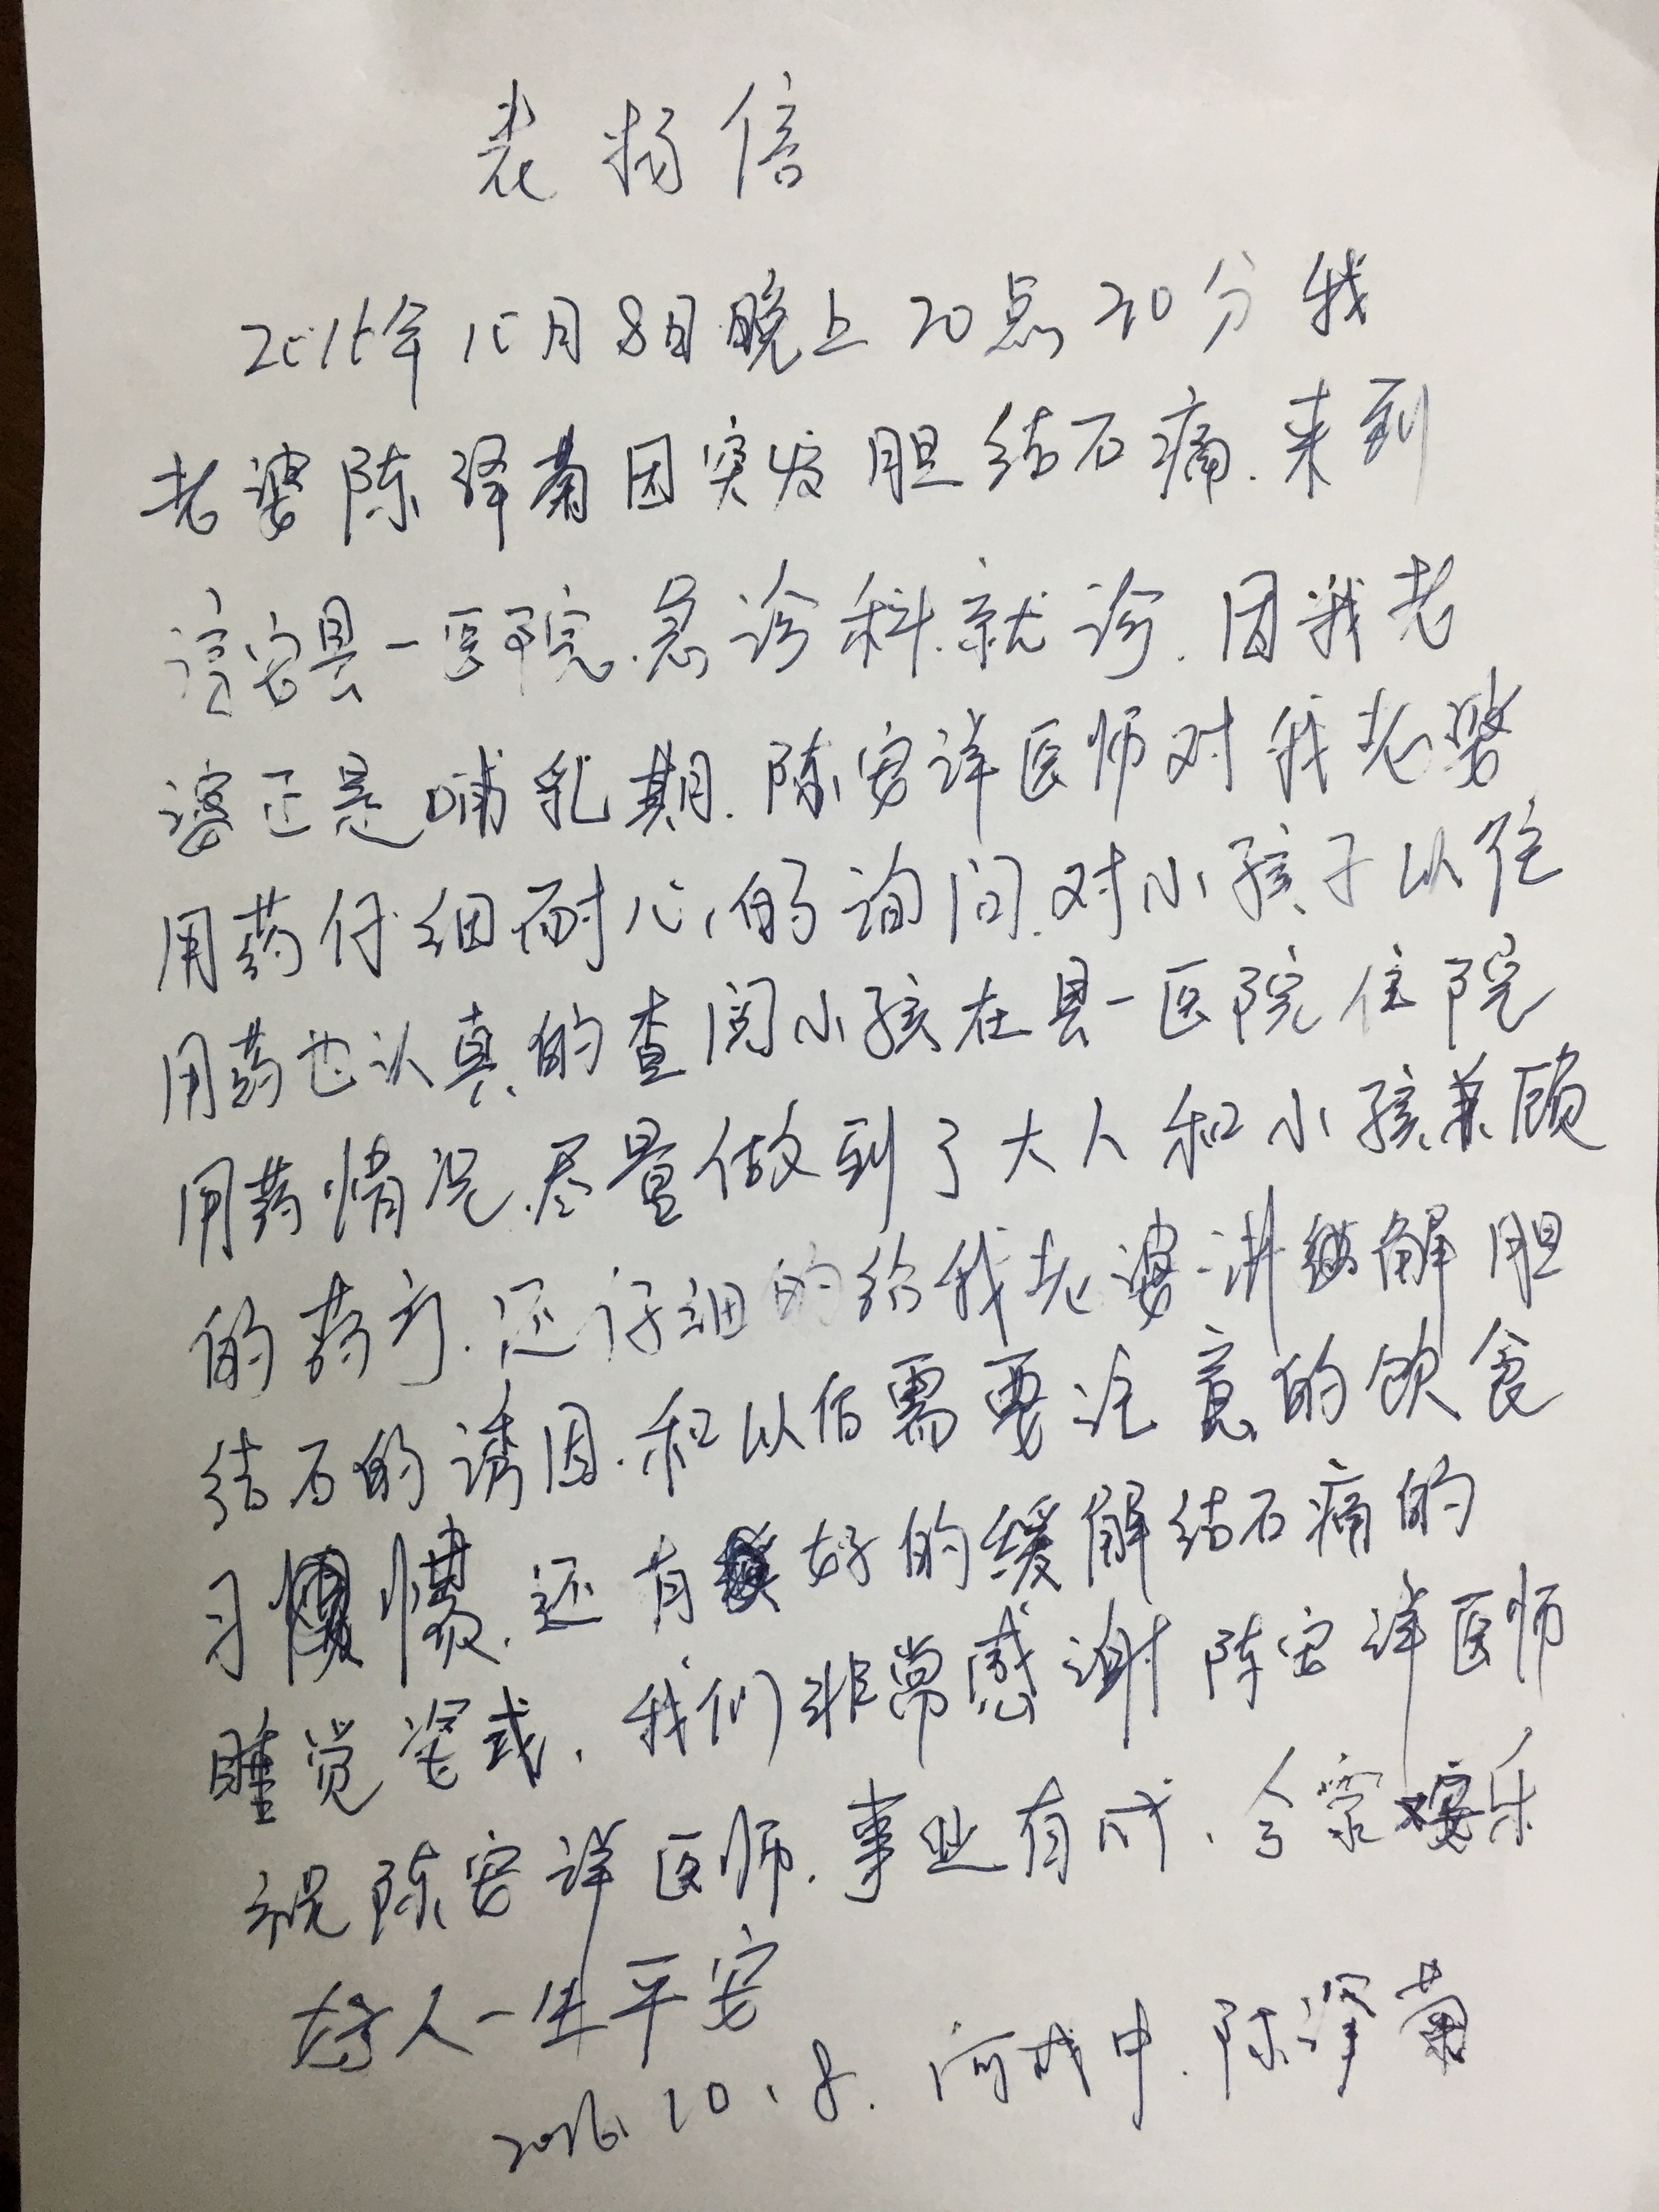 表扬信
2016年10月8日晚上20点20分我
老婆陈泽菊因突发胆结石痛.来到
淳安县一医院.急诊科.就诊.因我老
婆正是哺乳期.陈安详医师对我老婆
用药仔细耐心的询问.对小孩子以往
用药也认真的查阅小孩在县一医院住院
用药情况.尽量做到了大人和小孩兼顾
的药方.还仔细的给我老婆讲解胆
结石的诱因.和以后需要注意的饮食
习惯.还有好的缓解结石痛的
睡觉姿式.我们非常感谢陈安详医师
祝陈安详医师.事业有成.全家安乐
好人一生平安
2016.10.8.何成中.陈泽菊